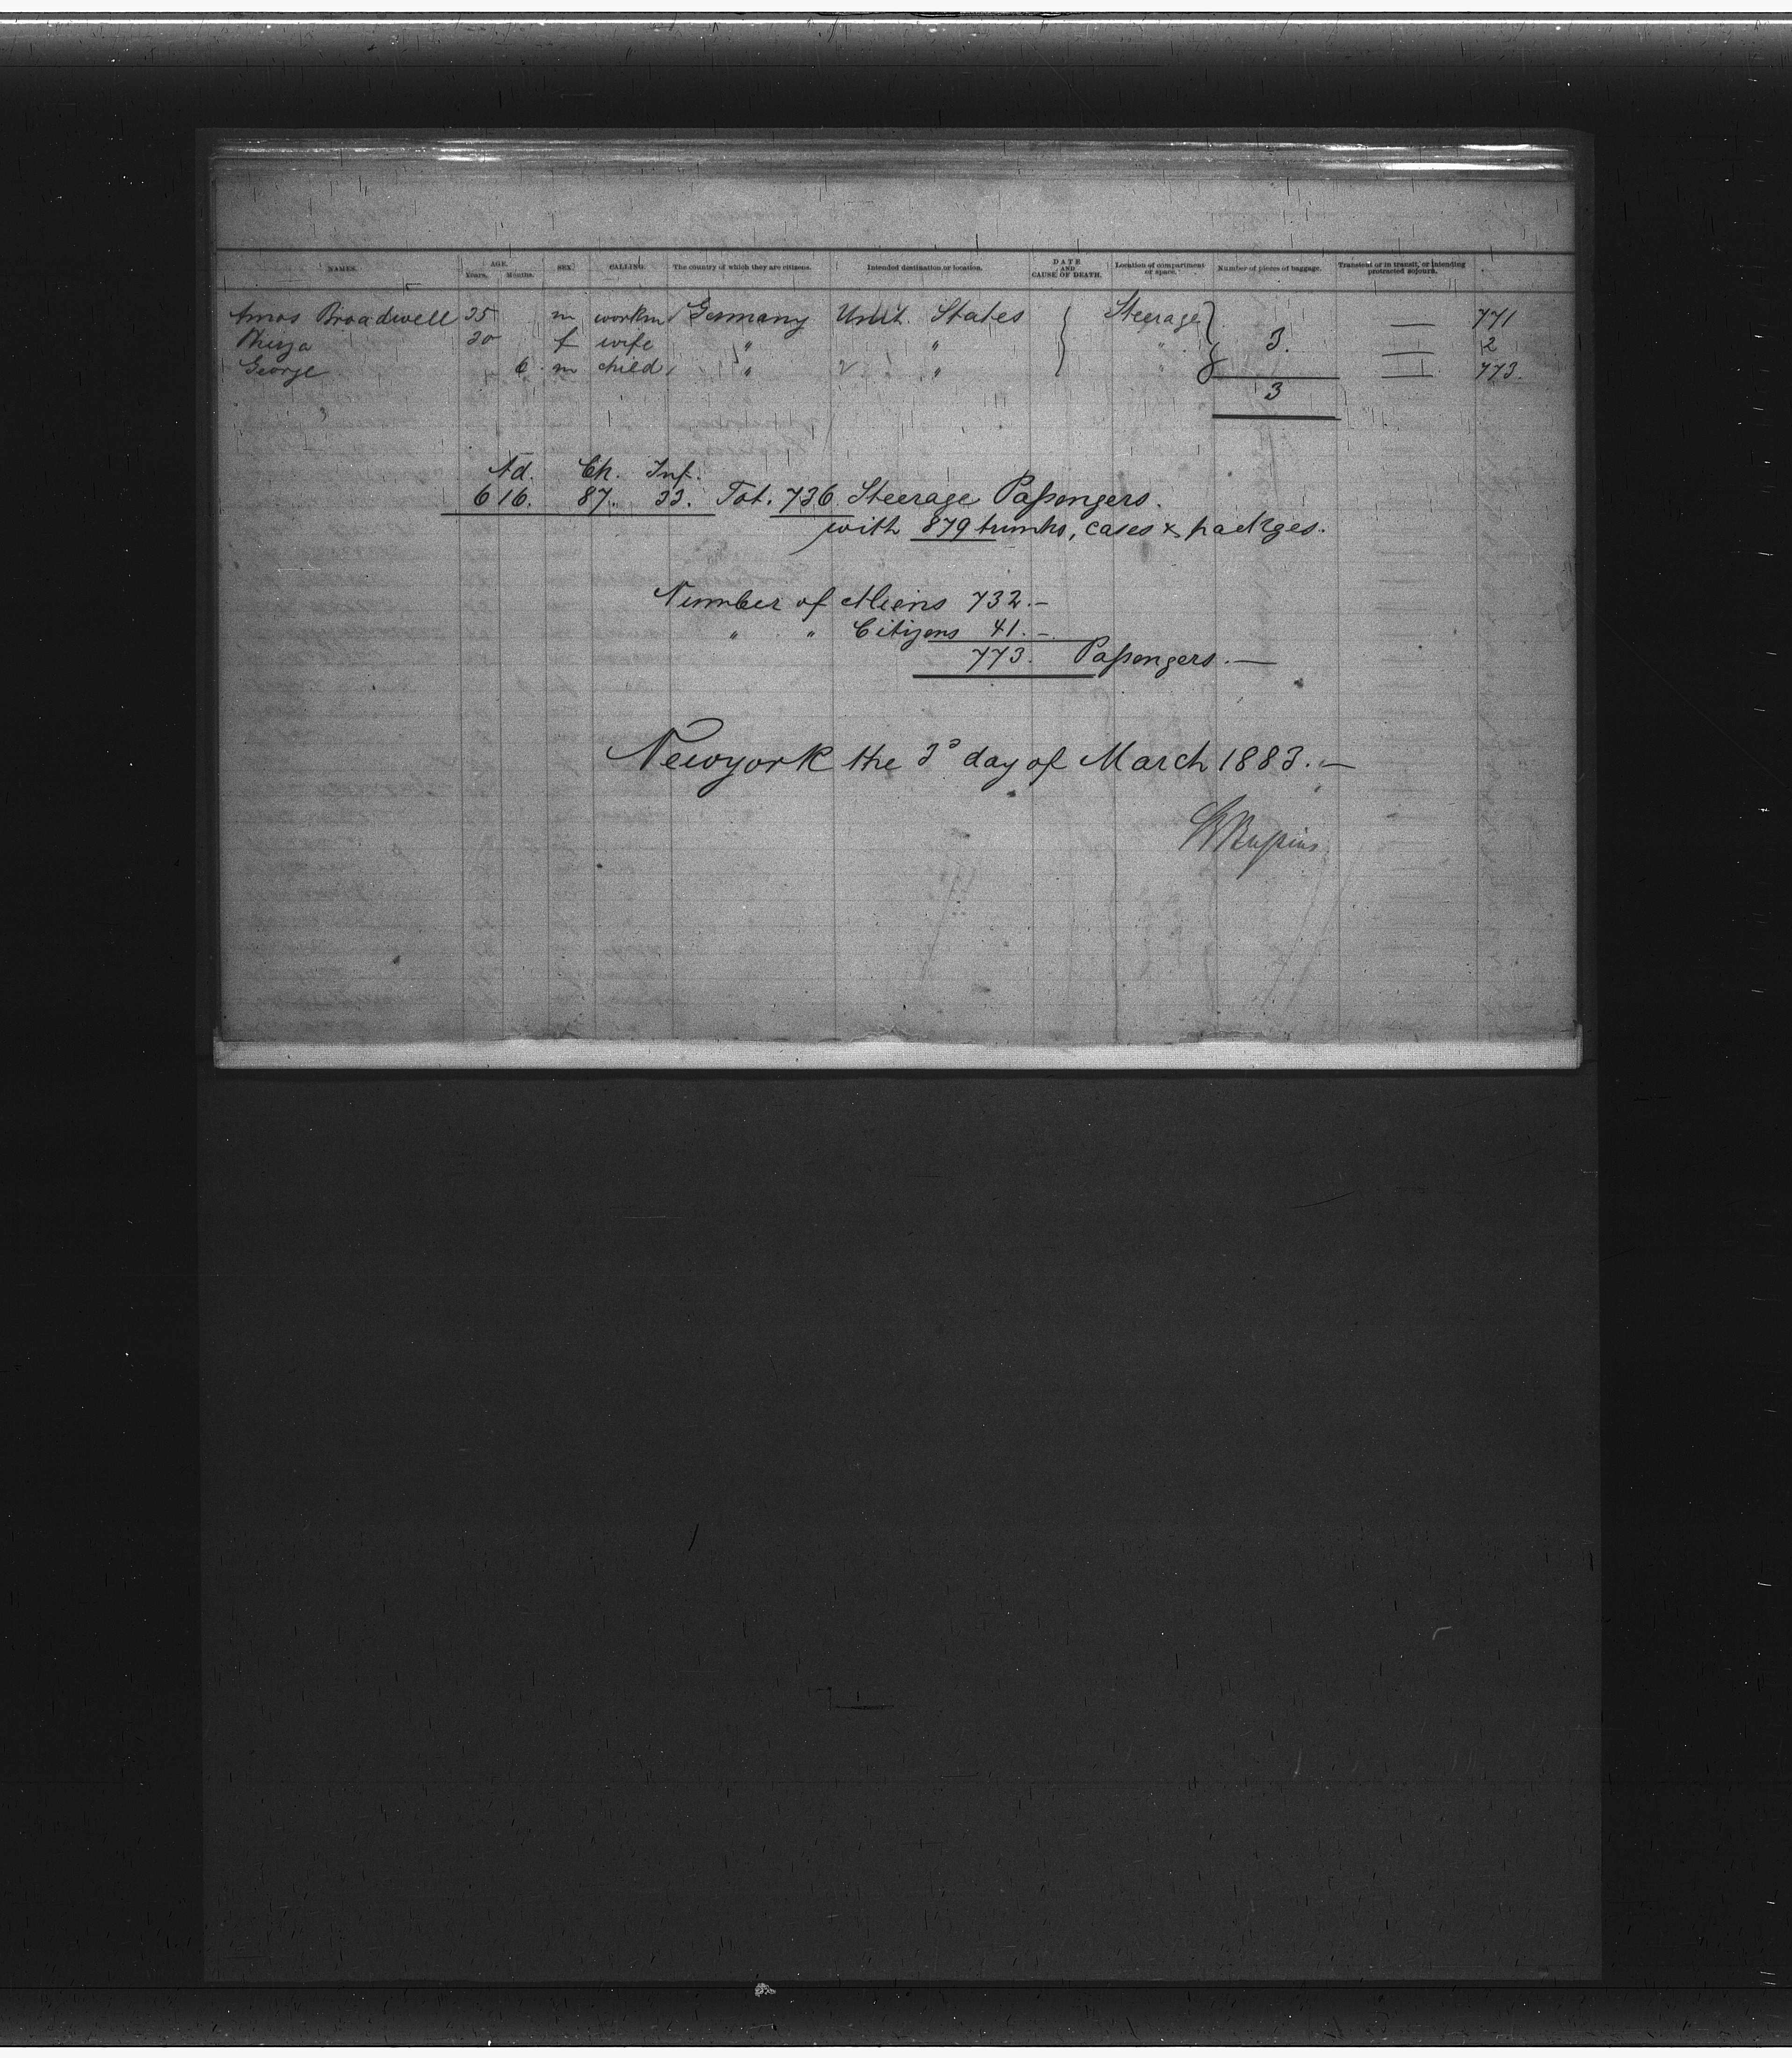 NAMES. AGE. Years. Months. SEX. CALLING. The country of which they are citizens. Intended destination or location. DATE AND CAUSE OF DEATH. Location of compartment or space. Number of pieces of baggage. Transient or in transit, or intending protracted sojourn.
Amos Broadwell 35 m workm Germany Unit. States Steerage — 771
30 f wife " " " 3. — 2
George 6 m child " " " — 773.
3
Ad. Ch. Inf.
616. 87. 33. Tot. 736 Steerage Passengers.
with 879 trunks, cases & packges.
Number of Aliens 732.—
" " Citizens 41.—
773. Passengers.—
Newyork the 3d day of March 1883.—